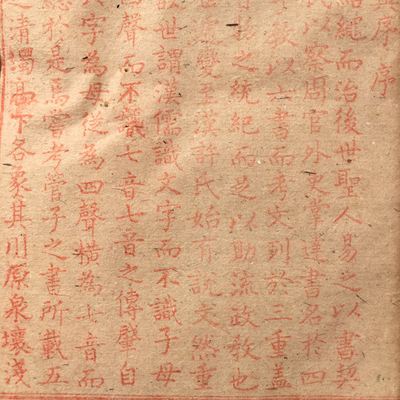 典序序
結繩而治後世聖人易之以書契
民以察周官外史掌達書名於四
教以六書而考文列於三重蓋
百物之統紀而足以助流政教也
遞變至漢許氏始有說文然重
故世謂漢儒識文字而不識子母
四聲而不識七音七音之傳肇自
文字為母從為四聲橫為七音而
總於是焉嘗考管子之書所載五
之清濁高下各象其川原泉壤淺